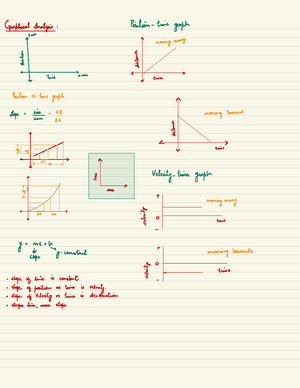 Graphical Analysis:
Position-time graph
y-axis
Position
time
x-axis
moving away
distance
time
Position vs time graph
slope = rise/run = Δy/Δx
moving toward
distance
time
Velocity-time graph
+
velocity
0
-
moving away
time
y = mx + b
slope
y-constant
+
velocity
0
-
moving towards
time
• slope of line is constant
• slope of position vs time is velocity
• slope of velocity vs time is acceleration